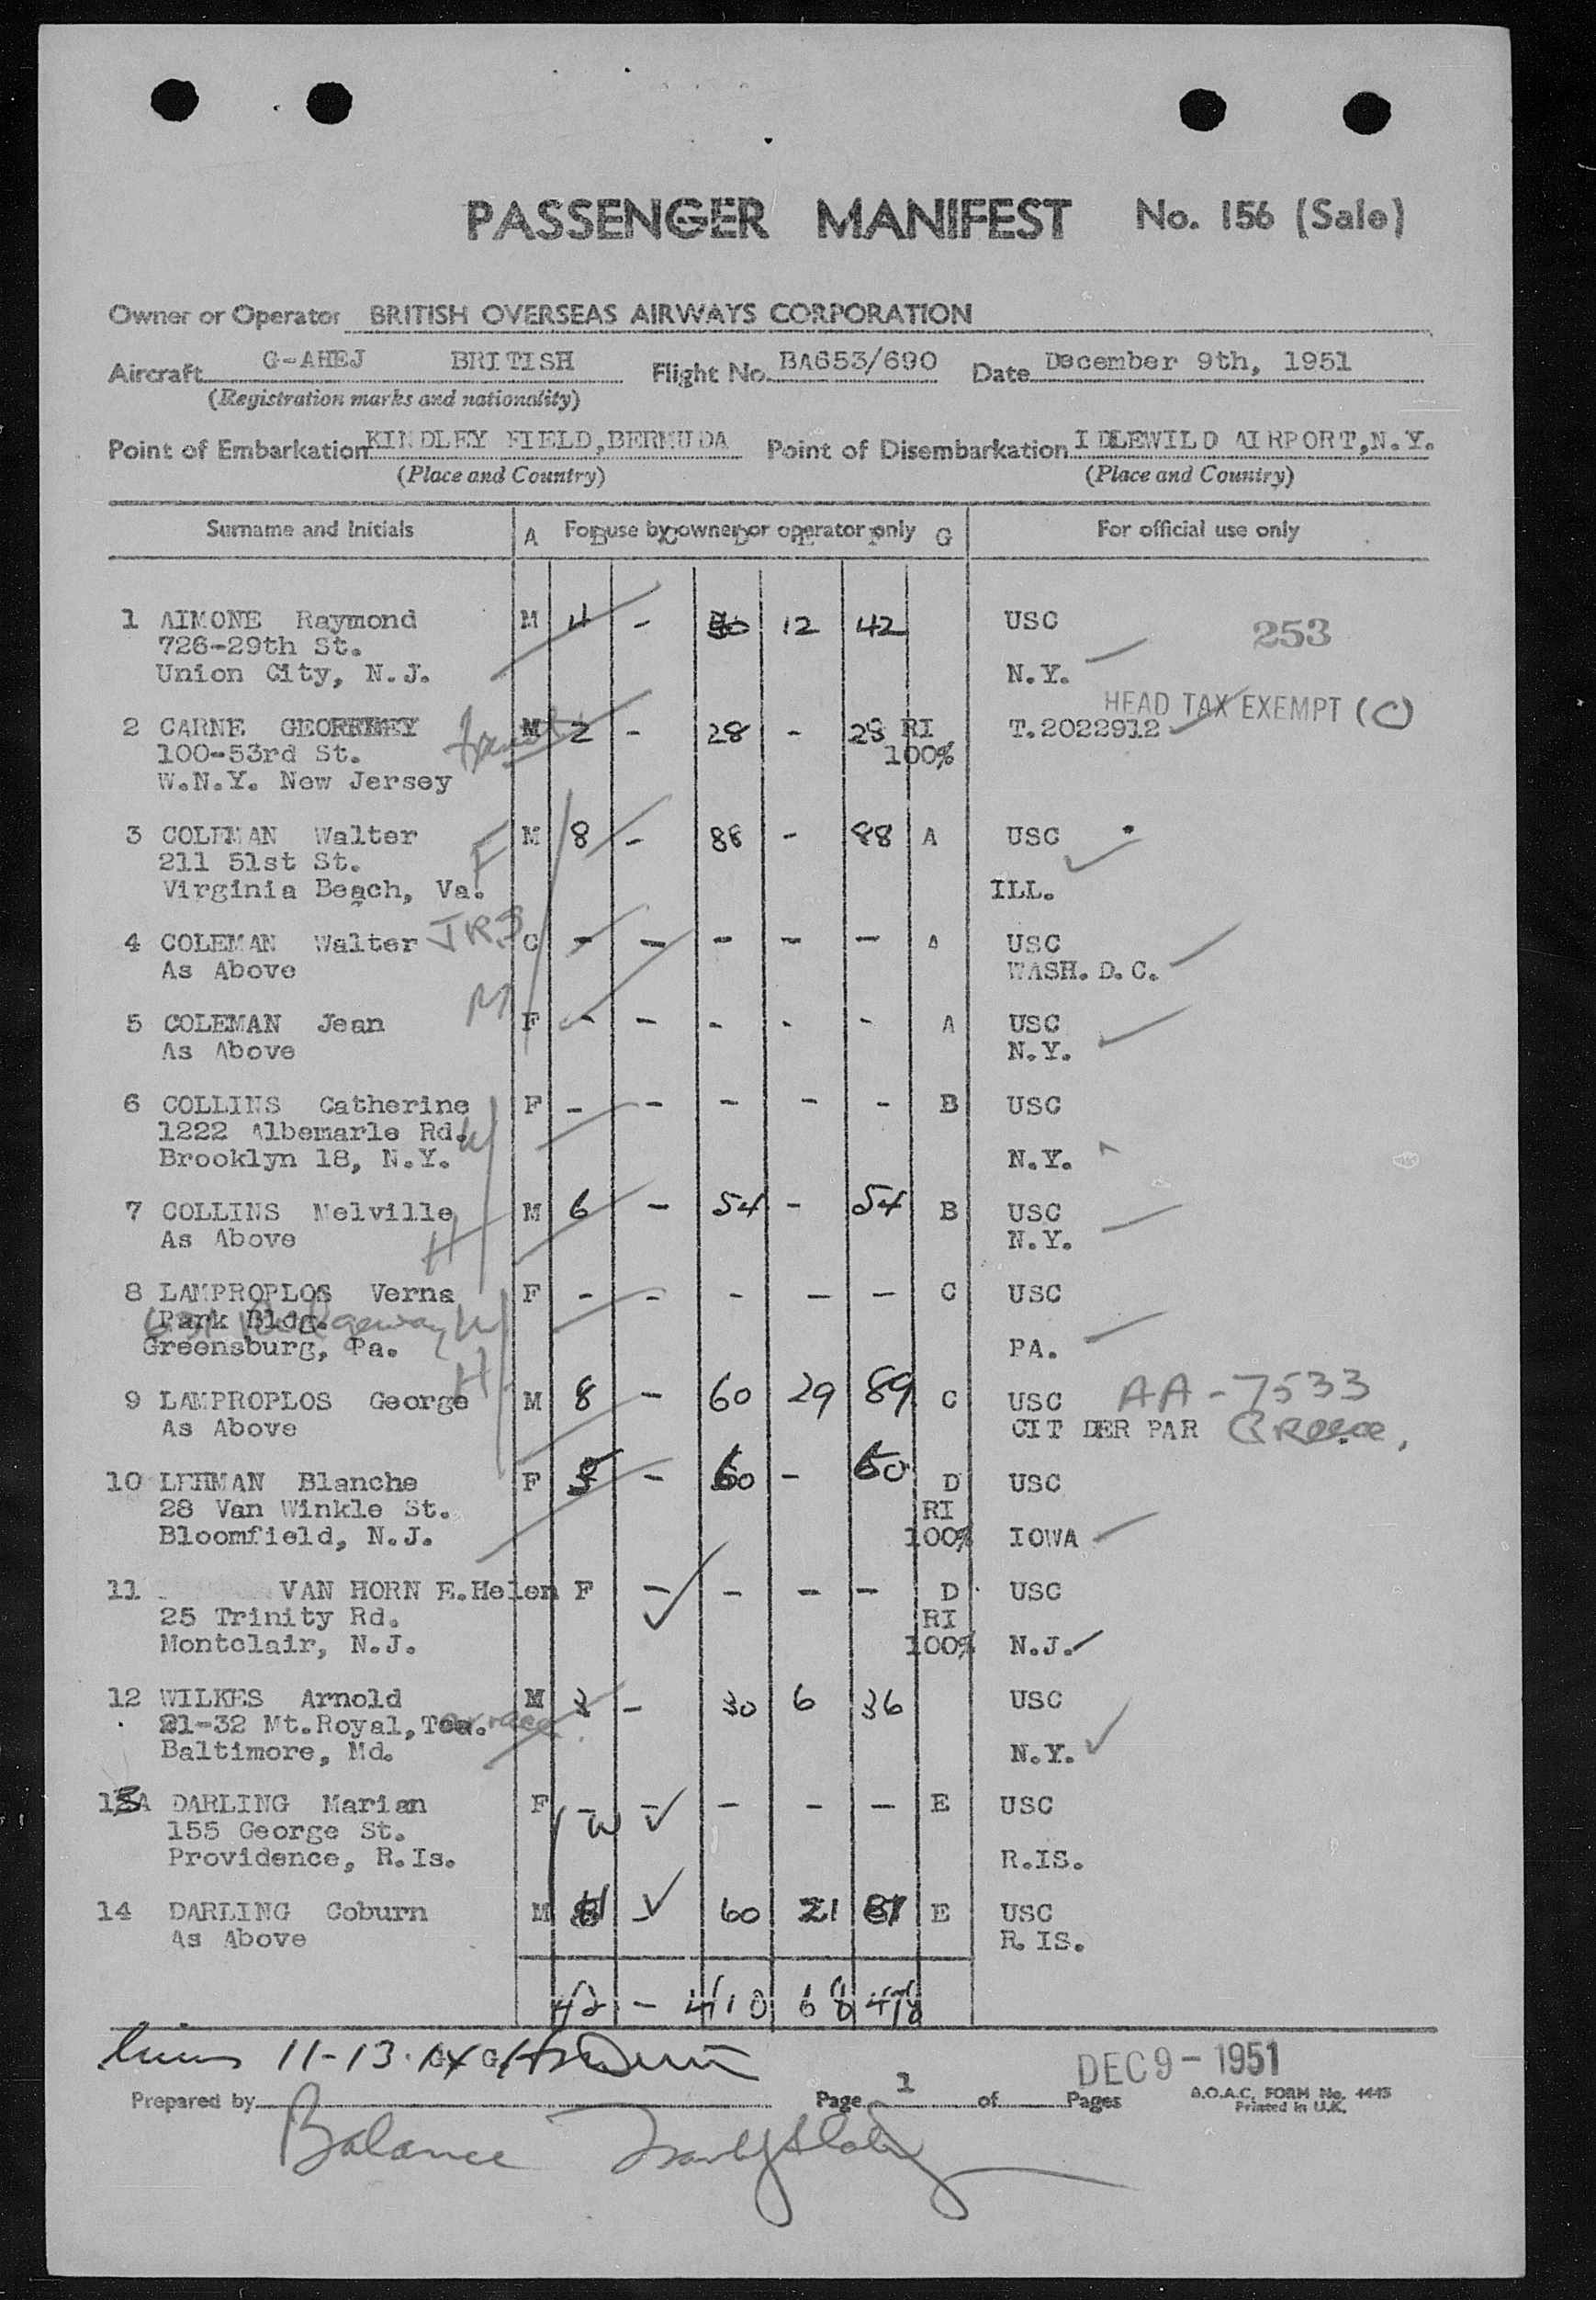 PASSENGER MANIFEST No. 156 (Sale)
Owner or Operator BRITISH OVERSEAS AIRWAYS CORPORATION
Aircraft G-AHEJ BRITISH Flight No. BA653/690 Date December 9th, 1951
(Registration marks and nationality)
Point of Embarkation KINDLEY FIELD,BERMUDA Point of Disembarkation IDLEWILD AIRPORT,N.Y.
(Place and Country) (Place and Country)
Surname and Initials A For use by owner or operator only G For official use only
1 AIMONE Raymond M 4 - 30 12 42 USC
726-29th St. 253
Union City, N.J. N.Y.
HEAD TAX EXEMPT (C)
2 CARNE M 2 - 28 - 28 RI T.2022912
100-53rd St. 100%
W.N.Y. New Jersey
3 COLEMAN Walter F M 8 - 88 - 88 A USC
211 51st St.
Virginia Beach, Va. ILL.
4 COLEMAN Walter JR C - - - - - A USC
As Above WASH. D.C.
5 COLEMAN Jean M F - - - - - A USC
As Above N.Y.
6 COLLINS Catherine F - - - - - B USC
1222 Albemarle Rd. W
Brooklyn 18, N.Y. N.Y.
7 COLLINS Melville M 6 - 54 - 54 B USC
As Above H N.Y.
8 LAMPROPLOS Verna F - - - - - C USC
Park Bldg. W
Greensburg, Pa. PA.
9 LAMPROPLOS George H M 8 - 60 29 89 C USC AA-7533
As Above CIT DER PAR Greece,
10 LEHMAN Blanche F - 60 - 60 D USC
28 Van Winkle St. RI
Bloomfield, N.J. 100% IOWA
11 VAN HORN E.Helen F - - - - D USC
25 Trinity Rd. RI
Montclair, N.J. 100% N.J.
12 WILKES Arnold M 3 - 30 6 36 USC
21-32 Mt.Royal,
Baltimore, Md. N.Y.
13A DARLING Marian F - - - - - E USC
155 George St. W
Providence, R.Is. R.IS.
14 DARLING Coburn M H - 60 21 81 E USC
As Above R.IS.
42 - 410 68 478
11-13-14
DEC 9 - 1951
Prepared by Page 1 of Pages B.O.A.C. FORM No. 4445
Printed in U.K.
Balance